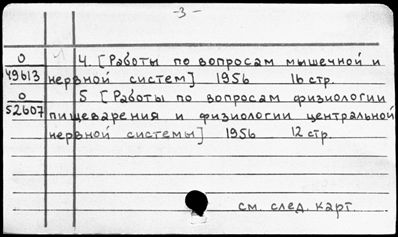 -3-
О
49613
4. [Работы по вопросам мышечной и
нервной систем] 1956 16 стр.
О
52607
5 [Работы по вопросам физиологии
пищеварения и физиологии центральной
нервной системы] 1956 12 стр.
см. след. карт.